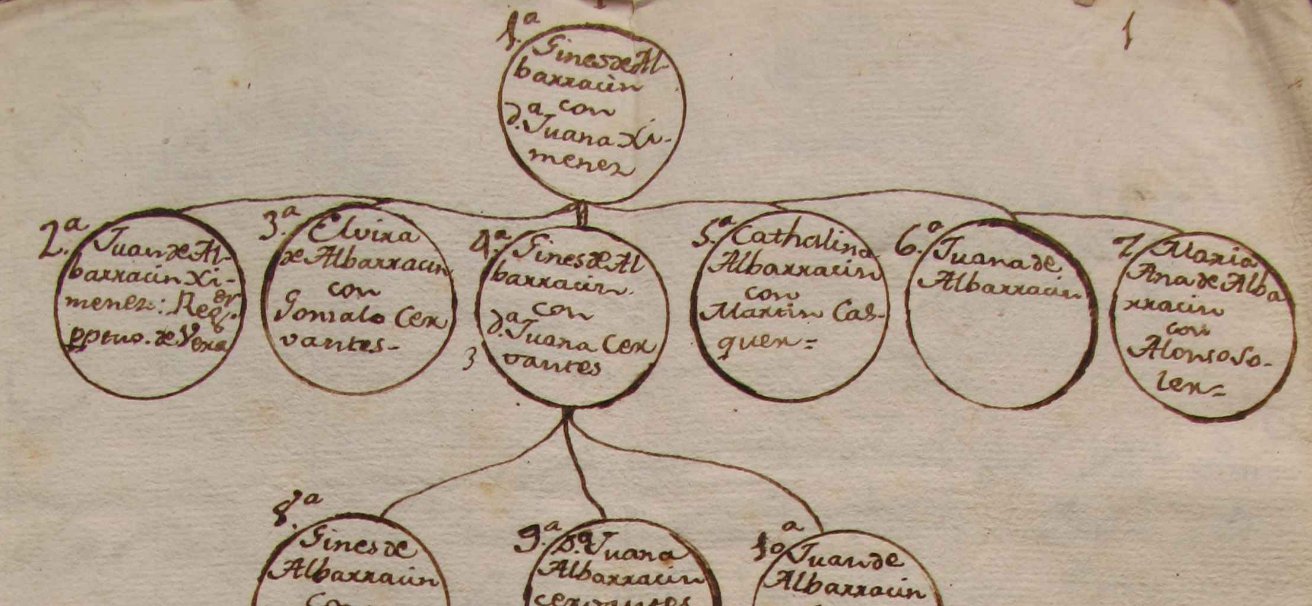 1
1.a
Gines de Al-
barracin
con
d.a Juana Xi-
menez
2.a
Juan de Al-
barracin Xi-
menez: Reg.or
pptuo. de Vera
3.a
Elvira
de Albarracin
con
Gonzalo Cer
vantes-
4.a
Gines de Al
barracin.
con
d.a Juana Cer
vantes
3
5.a
Cathalina
Albarracin
con
Martin Cas-
quer=
6.a
Juana de
Albarracin
7
Maria
Ana de Alba
rracin
con
Alonso So-
ler=
8.a
Gines de
Albarracin
con
9.a
D.a Juana
Albarracin
cervantes
10.a
Juan de
Albarracin